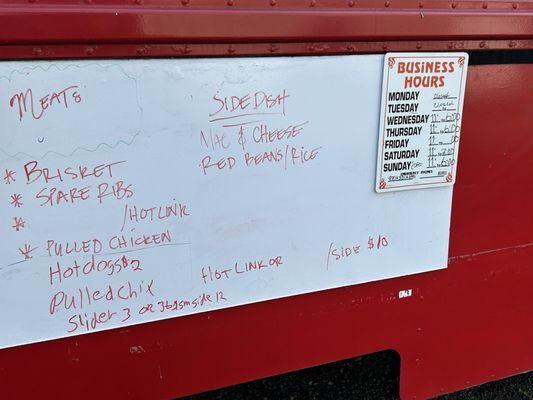 MEATS
* BRISKET
* SPARE RIBS
* /HOTLINK
* PULLED CHICKEN
Hotdogs 2
Pulled chix
Slider 3 or 3 sm side 12
SIDE DISH
MAC & CHEESE
RED BEANS/RICE
HOT LINK OR /SIDE $10
BUSINESS HOURS
MONDAY closed
TUESDAY closed
WEDNESDAY 11 to 6:00
THURSDAY 11 to 6:00
FRIDAY 11 to 6:00
SATURDAY 11 to
SUNDAY 11 to 6:00
EMERGENCY PHONES